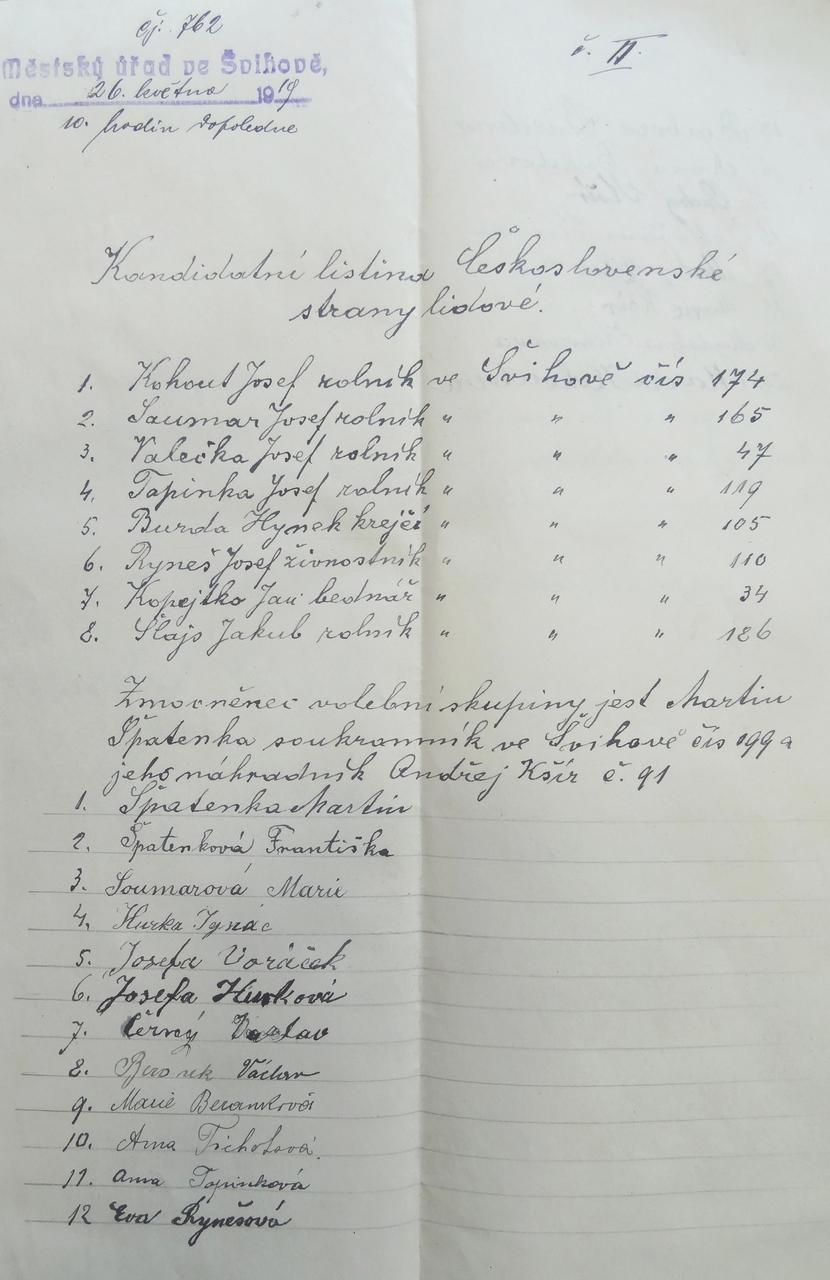 čj. 762
č. II.
Městský úřad ve Švihově,
dne 26. května 1919
10. hodin dopoledne
Kandidatní listina Československé
strany lidové.
1. Kohout Josef rolník ve Švihově čís 174
2. Saumar Josef rolník " " " 165
3. Valečka Josef rolník " " " 47
4. Tapinka Josef rolník " " " 119
5. Burda Hynek krejčí " " " 105
6. Ryneš Josef živnostník " " " 110
7. Kopejtko Jan bednář " " " 34
8. Šlajs Jakub rolník " " " 126
Zmocněnec volební skupiny jest Martin
Špatenka soukromník ve Švihově čís 199 a
jeho náhradník Andřej Kšír č. 91
1. Špatenka Martin
2. Špatenková Františka
3. Soumarová Marie
4. Hurka Ignác
5. Josefa Voráček
6. Josefa Hurková
7. Černý Vaclav
8. Václav
9. Marie
10. Anna
11. Anna Topinková
12 Eva Rynešová